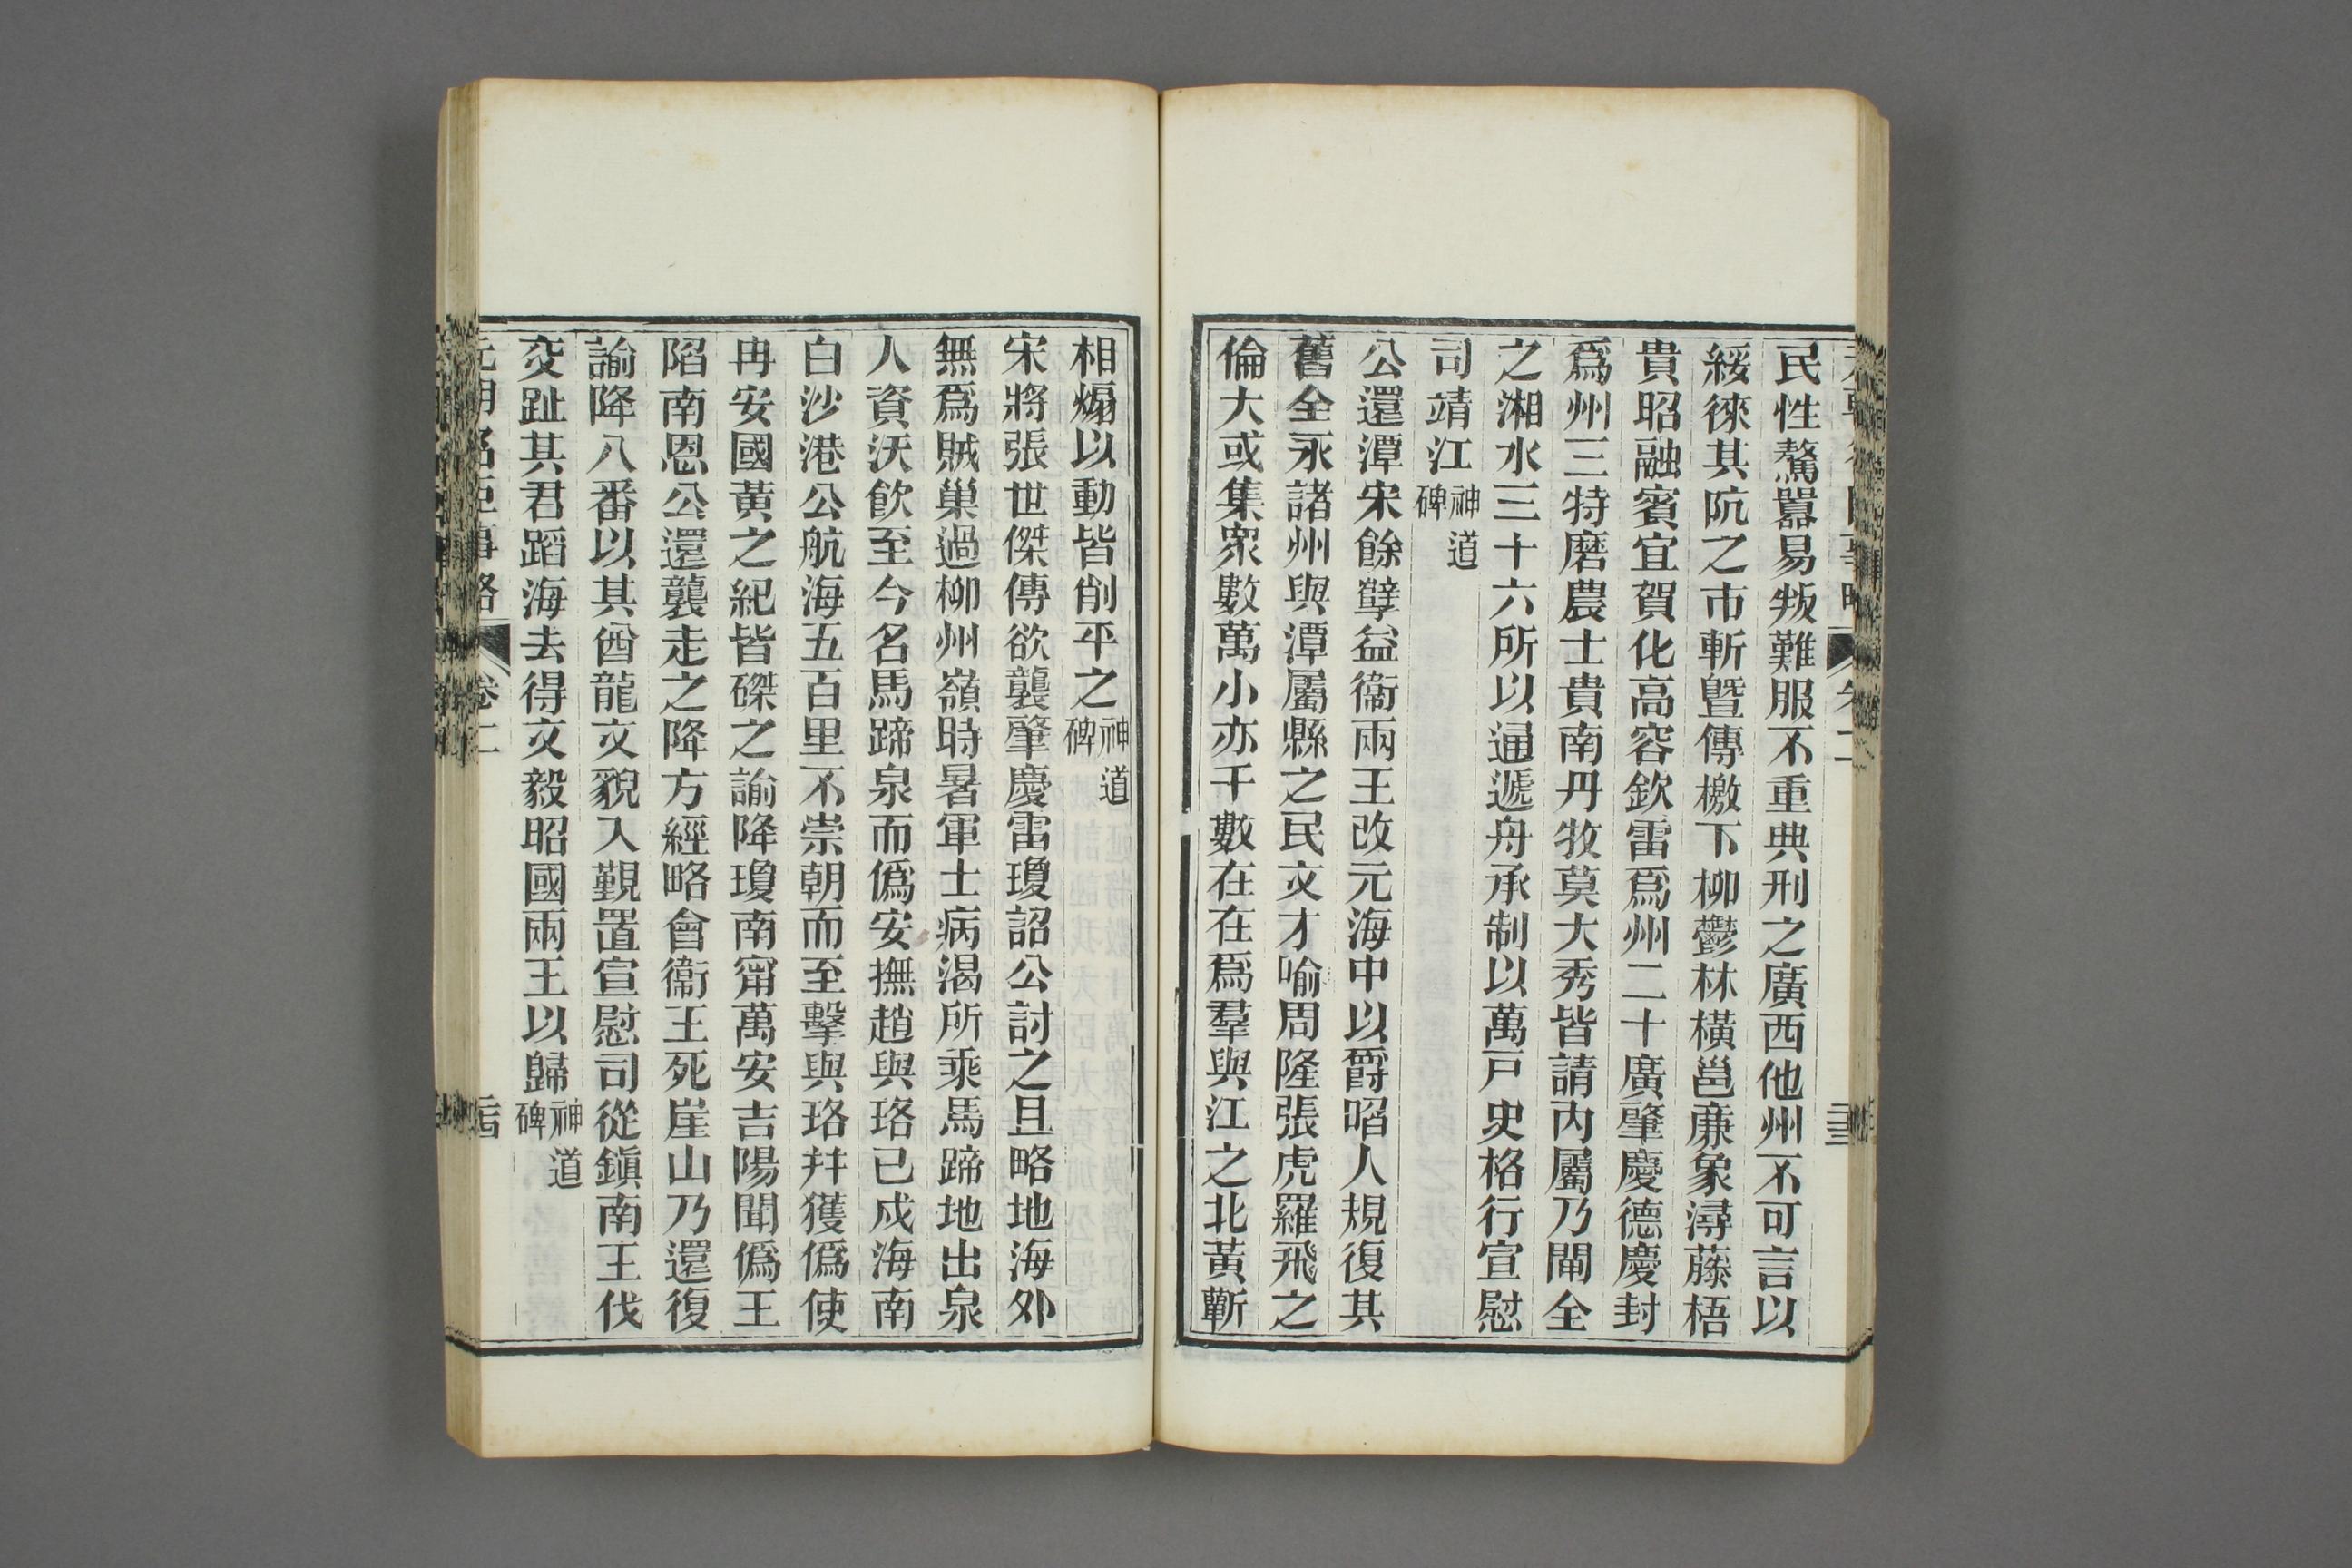 民性驁嚚易叛難服不重典刑之廣西他州不可言以
綏徠其阬之市斬曁傳檄下柳鬱林橫邕廉象潯藤梧
貴昭融賓宜賀化高容欽雷爲州二十廣肇慶德慶封
爲州三特磨農士貴南丹牧莫大秀皆請內屬乃閘全
之湘水三十六所以通遞舟承制以萬戸史格行宣慰
司靖江神道碑
公還潭宋餘孽益衞兩王改元海中以爵啗人規復其
舊全永諸州與潭屬縣之民文才喻周隆張虎羅飛之
倫大或集衆數萬小亦千數在在爲羣與江之北黃蘄
相煽以動皆削平之神道碑
宋將張世傑傳欲襲肇慶雷瓊詔公討之且略地海外
無爲賊巢過柳州嶺時暑軍士病渴所乘馬蹄地出泉
人資沃飮至今名馬蹄泉而僞安撫趙與珞已戍海南
白沙港公航海五百里不崇朝而至擊與珞幷獲僞使
冉安國黃之紀皆磔之諭降瓊南甯萬安吉陽聞僞王
陷南恩公還襲走之降方經略會衞王死崖山乃還復
諭降八番以其酋龍文貌入覲置宣慰司從鎭南王伐
交趾其君蹈海去得文毅昭國兩王以歸神道碑
元朝名臣事略 卷二